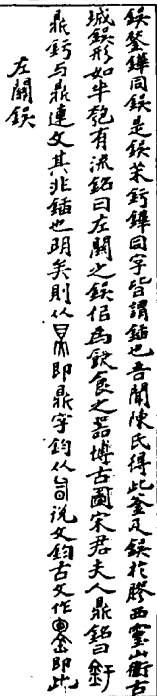 鋘鋬鏵同鋘是鋘茉釪鏵同字皆謂鍤也吾聞陳氏得此釜及鋘於膠西靈山衛古
城鋘形如半匏有流銘曰左關之鋘侣為飲食之器博古圖宋君夫人鼎銘曰釪
鼎釪与鼎連文其非鍤也明矣則从即鼎字鈞从说文鈞古文作即此
左關鋘